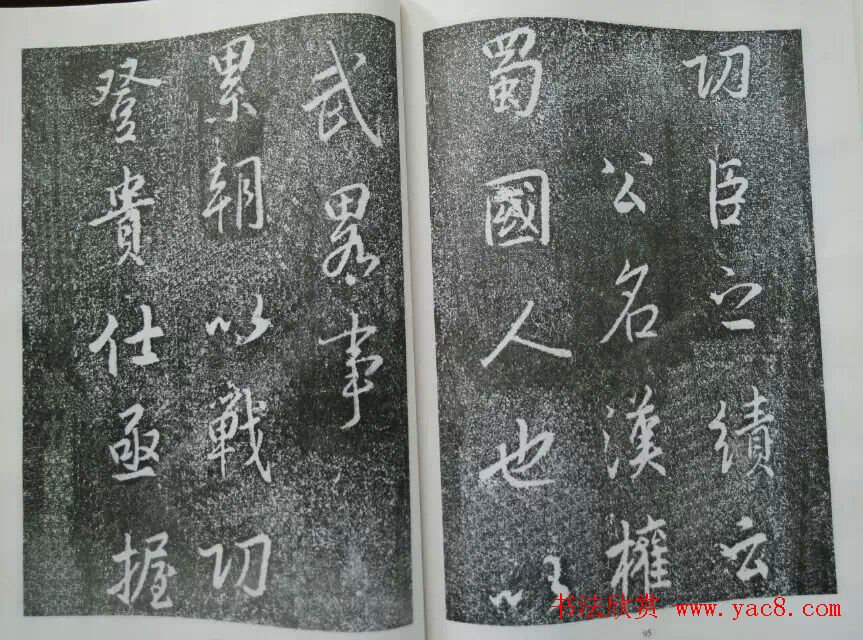 功臣之績云
公名漢權
蜀國人也以
武畧事
累朝以戰功
登貴仕亟握
95
书法欣赏 www.yac8.com